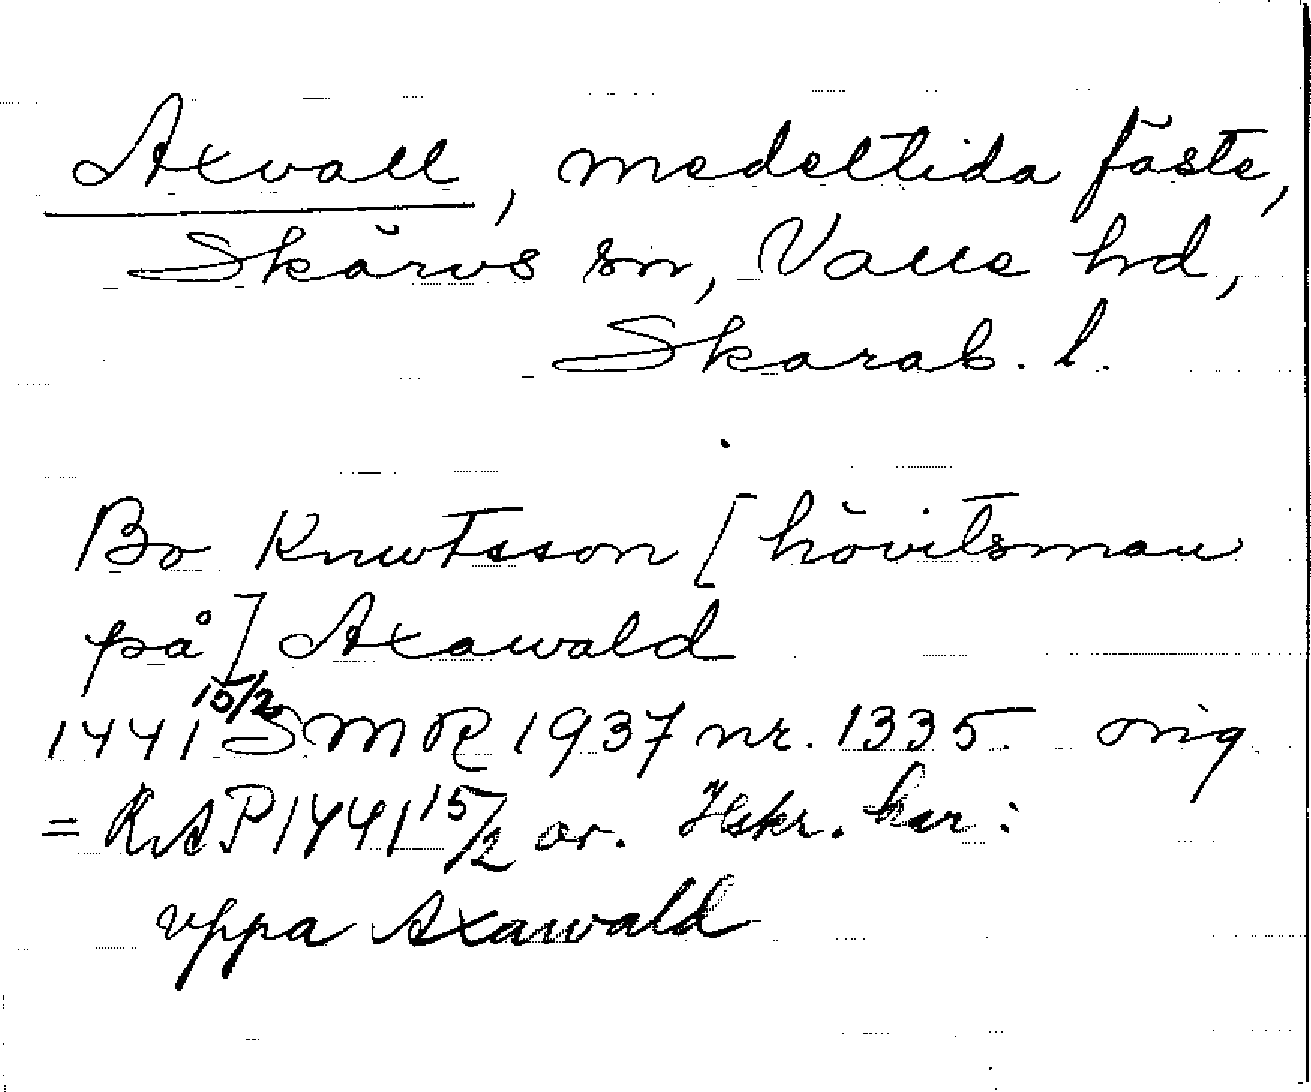 Axvall, medeltida fäste,
Skärvs sn, Valle hd,
Skarab. l.
Bo Knwtsson [hövitsman
på] Axawald
1441 15/2 SMR 1937 nr. 1335. orig
= RAP 1441 15/2 or. Hskr. har:
vppa Axawald